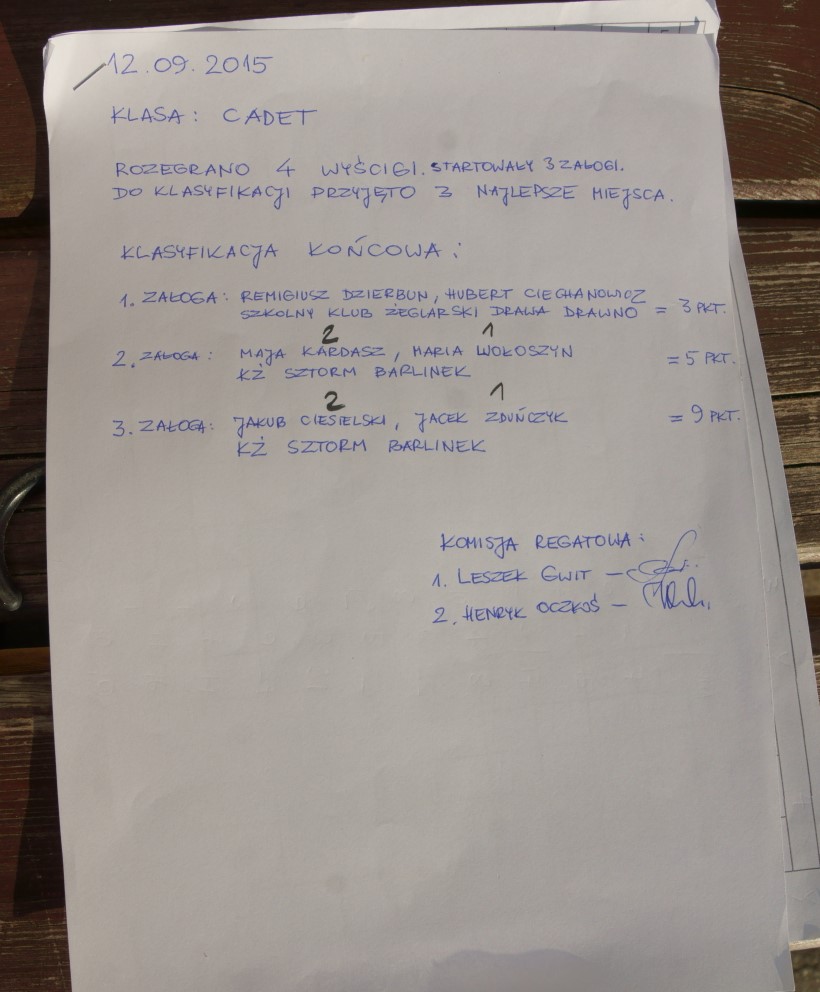 12.09.2015
KLASA: CADET
ROZEGRANO 4 WYŚCIGI. STARTOWAŁY 3 ZAŁOGI.
DO KLASYFIKACJI PRZYJĘTO 3 NAJLEPSZE MIEJSCA.
KLASYFIKACJA KOŃCOWA:
1. ZAŁOGA: REMIGIUSZ DZIERBUN, HUBERT CIECHANOWICZ
SZKOLNY KLUB ŻEGLARSKI DRAWA DRAWNO = 3 PKT.
2 1
2. ZAŁOGA: MAJA KARDASZ, MARIA WOŁOSZYN = 5 PKT.
KŻ SZTORM BARLINEK
2 1
3. ZAŁOGA: JAKUB CIESIELSKI, JACEK ZDUŃCZYK = 9 PKT.
KŻ SZTORM BARLINEK
KOMISJA REGATOWA:
1. LESZEK GWIT –
2. HENRYK OCZKOŚ –